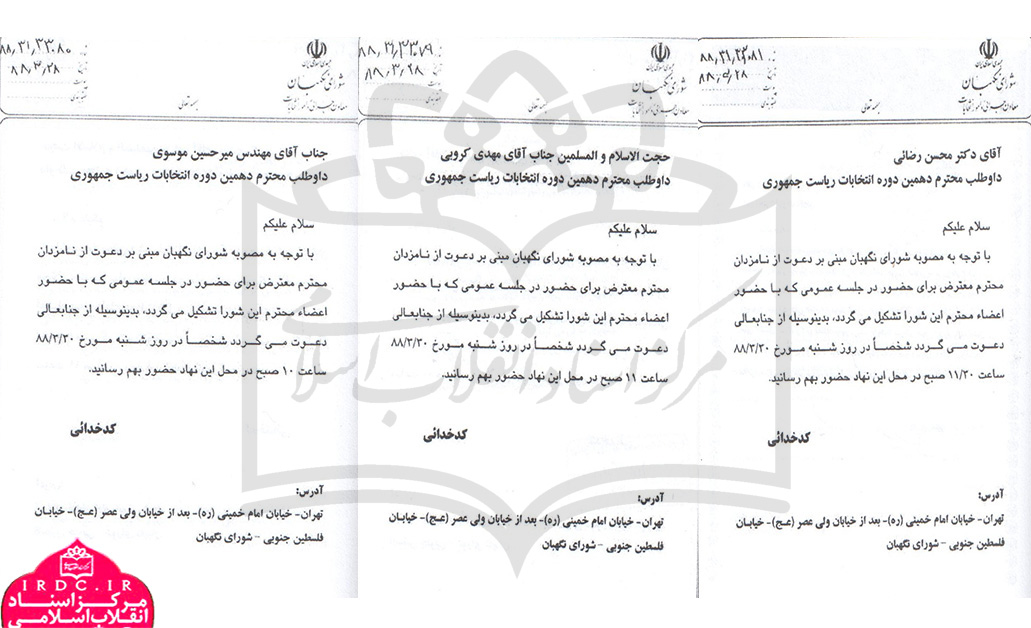 جمهوری اسلامی ایران
شورای نگهبان
بسمه تعالی
۸۸,۳۱,۳۳۰۸۱
آقای دکتر محسن رضائی
داوطلب محترم دهمین دوره انتخابات ریاست جمهوری
سلام علیکم
با توجه به مصوبه شورای نگهبان مبنی بر دعوت از نـامزدان
محترم معترض برای حضور در جلسه عمومی کـه بـا حضور
اعضاء محترم این شورا تشکیل می گردد، بدینوسیله از جنابعـالی
دعـوت مـی گـردد شخصـاً در روز شـنبه مـورخ ۸۸/۳/۳۰
ساعت ۱۱/۳۰ صبح در محل این نهاد حضور بهم رسانید.
کدخدائی
آدرس:
تهران- خیابان امام خمینی (ره)- بعد از خیابان ولی عصر (عـج)- خیابـان
فلسطین جنوبی - شورای نگهبان
جمهوری اسلامی ایران
شورای نگهبان
بسمه تعالی
۸۸,۳۱,۳۳۰۷۹
۸۸,۳,۲۸
حجت الاسلام و المسلمین جناب آقای مهدی کروبی
داوطلب محترم دهمین دوره انتخابات ریاست جمهوری
سلام علیکم
با توجه به مصوبه شورای نگهبان مبنی بر دعوت از نـامزدان
محترم معترض برای حضور در جلسه عمومی کـه بـا حضور
اعضاء محترم این شورا تشکیل می گردد، بدینوسیله از جنابعـالی
دعـوت مـی گـردد شخصـاً در روز شـنبه مـورخ ۸۸/۳/۳۰
ساعت ۱۱ صبح در محل این نهاد حضور بهم رسانید.
کدخدائی
آدرس:
تهران- خیابان امام خمینی (ره)- بعد از خیابان ولی عصر (عـج)- خیابـان
فلسطین جنوبی - شورای نگهبان
جمهوری اسلامی ایران
شورای نگهبان
بسمه تعالی
۸۸,۳۱,۳۳۰۸۰
۸۸,۳,۲۸
جناب آقای مهندس میرحسین موسوی
داوطلب محترم دهمین دوره انتخابات ریاست جمهوری
سلام علیکم
با توجه به مصوبه شورای نگهبان مبنی بر دعوت از نـامزدان
محترم معترض برای حضور در جلسه عمومی کـه بـا حضور
اعضاء محترم این شورا تشکیل می گردد، بدینوسیله از جنابعـالی
دعـوت مـی گـردد شخصـاً در روز شـنبه مـورخ ۸۸/۳/۳۰
ساعت ۱۰ صبح در محل این نهاد حضور بهم رسانید.
کدخدائی
آدرس:
تهران- خیابان امام خمینی (ره)- بعد از خیابان ولی عصر (عـج)- خیابـان
فلسطین جنوبی - شورای نگهبان
مرکز اسناد انقلاب اسلامی
IRDC.IR
مرکز اسناد
انقلاب اسلامی